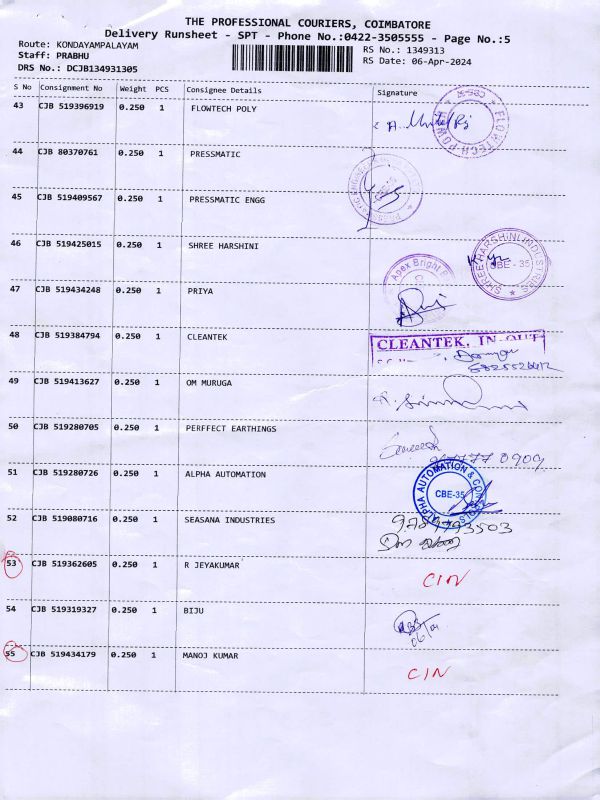 THE PROFESSIONAL COURIERS, COIMBATORE
Delivery Runsheet - SPT - Phone No.:0422-3505555 - Page No.:5
Route: KONDAYAMPALAYAM
Staff: PRABHU
DRS No.: DCJB134931305
RS No.: 1349313
RS Date: 06-Apr-2024
S No Consignment No Weight PCS Consignee Details Signature
43 CJB 519396919 0.250 1 FLOWTECH POLY
44 CJB 80370761 0.250 1 PRESSMATIC
45 CJB 519409567 0.250 1 PRESSMATIC ENGG
46 CJB 519425015 0.250 1 SHREE HARSHINI
SHREE HARSHINI INDUSTRIES
CBE - 35
47 CJB 519434248 0.250 1 PRIYA
Apex Bright
48 CJB 519384794 0.250 1 CLEANTEK
CLEANTEK, IN-OUT
49 CJB 519413627 0.250 1 OM MURUGA
50 CJB 519280705 0.250 1 PERFFECT EARTHINGS
51 CJB 519280726 0.250 1 ALPHA AUTOMATION
ALPHA AUTOMATION & CON
CBE-35
52 CJB 519080716 0.250 1 SEASANA INDUSTRIES
53 CJB 519362605 0.250 1 R JEYAKUMAR CIN
54 CJB 519319327 0.250 1 BIJU
06/04
55 CJB 519434179 0.250 1 MANOJ KUMAR CIN